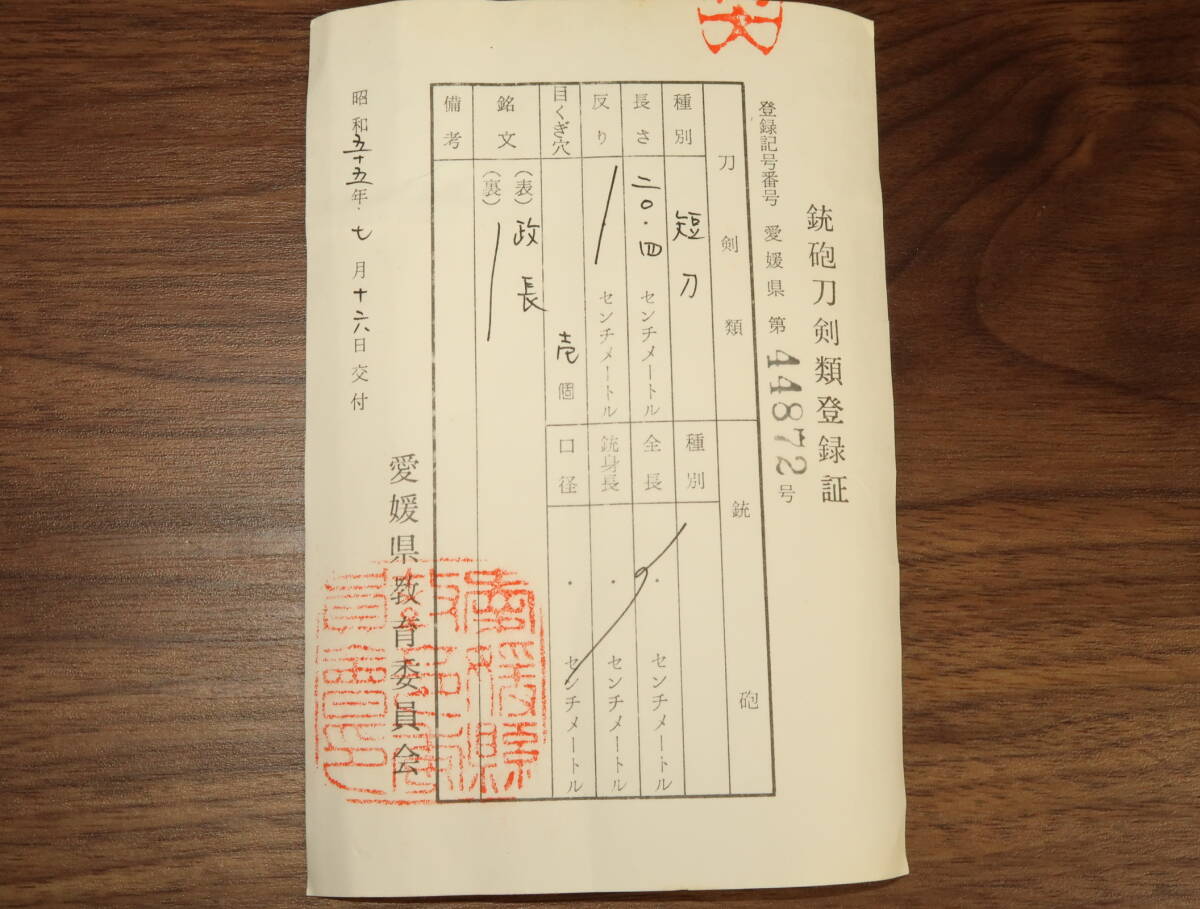 銃砲刀剣類登録証
登録記号番号 愛媛県 第44872号
刀剣類
種別 短刀
長さ 二〇.四 センチメートル
反り センチメートル
目くぎ穴 壱個
銘文 (表) 政長
(裏)
備考
銃砲
種別
全長 . センチメートル
銃身長 . センチメートル
口径 . センチメートル
昭和五十五年.七月十六日交付
愛媛県教育委員会